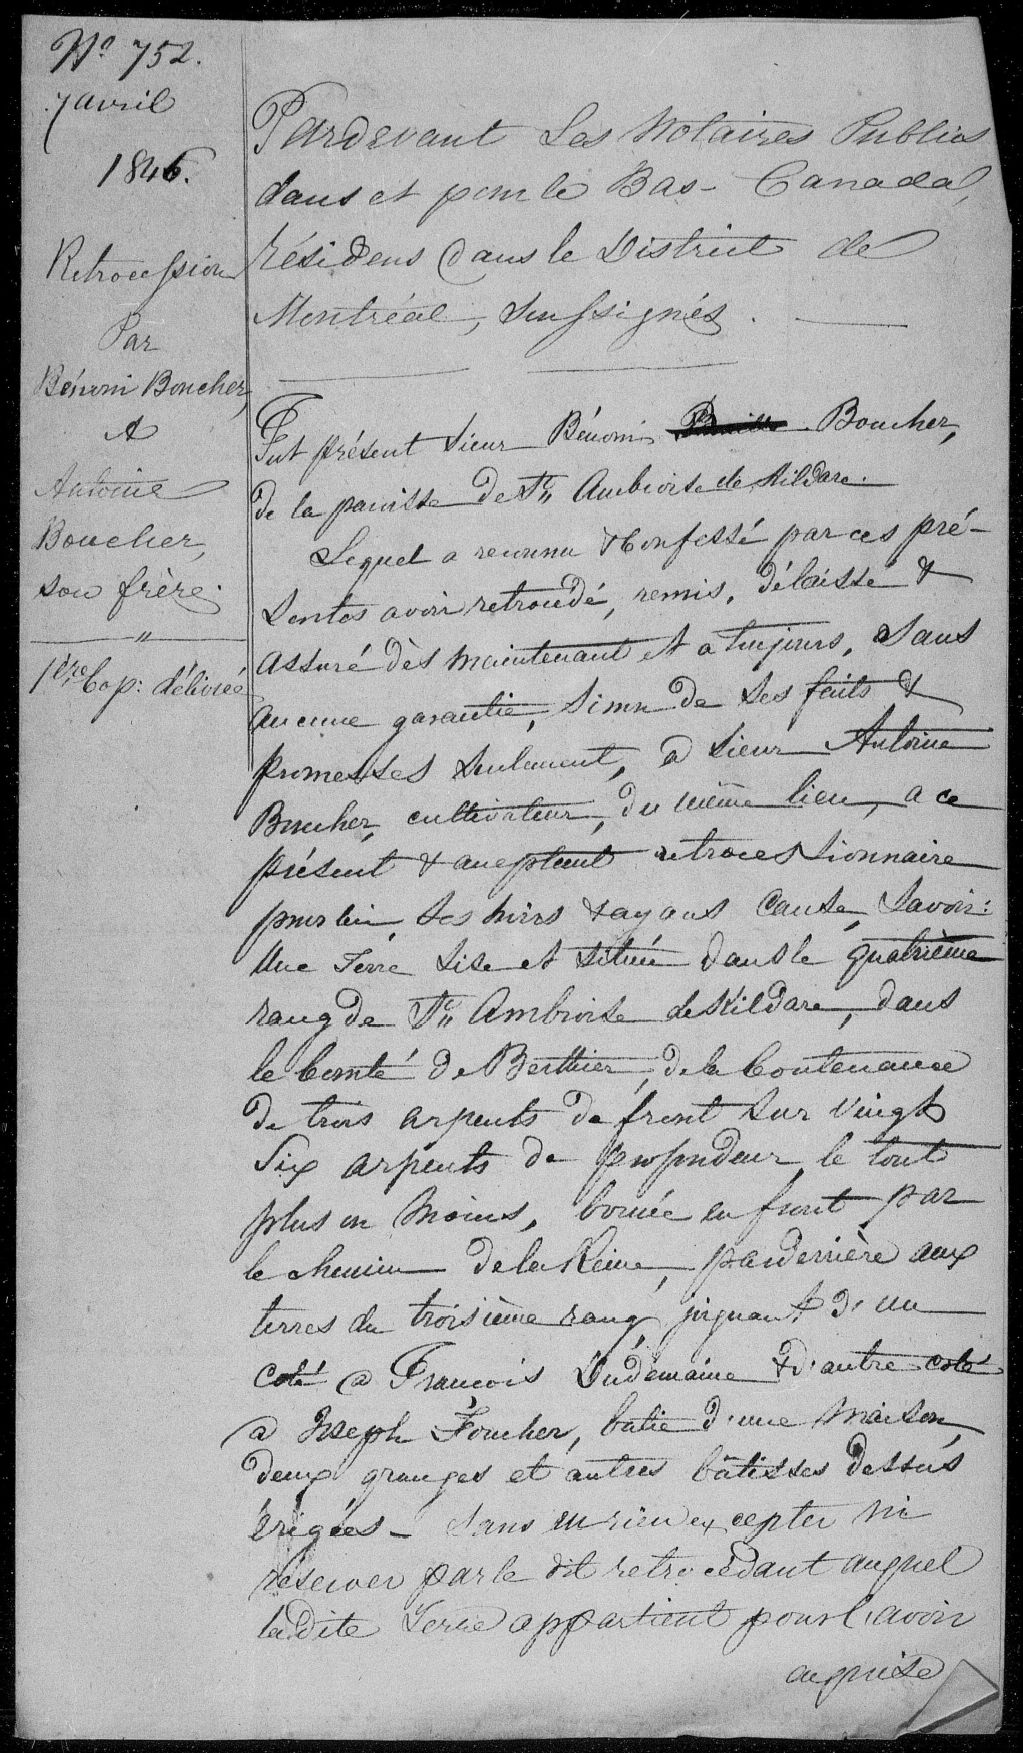 No 752.
7 avril
1846.
Retrocession
Par
Bénoni Boucher,
A
Antoine
Boucher,
son frère.
1ère Cop: délivrée
Pardevant Les Notaires Publics
dans et pour le Bas-Canada,
résidens dans le District de
Montréal, Soussignés.
Fut présent Sieur Bénoni Boucher,
de la paroisse de St. Ambroise de Kildare.
Lequel a reconnu & Confessé par ces pré-
sentes avoir retrocédé, remis, délaissé &
assuré dès maintenant et a toujours, Sans
aucune garantie, Sinon de Ses faits &
promesses seulement, a Sieur Antoine
Boucher, cultivateur, du même lieu, a ce
présent & acceptant retrocessionnaire
pour lui, Ses hoirs & ayans Cause, Savoir:
Une Terre Sise et Située dans le quatrième
rang de St. Ambroise de Kildare, dans
le Comté de Berthier, de la Contenance
De trois arpents de front Sur Vingt
Six arpents de profondeur, le tout
plus ou Moins, bornée en front par
le chemin de la Reine, par derrière aux
terres du troisième rang, joignant d'un
coté a François Dudemaine & d'autre coté
a Joseph Foucher, batie d'une Maison,
deux granges et autres bâtisses dessus
érigées - Sans en rien excepter ni
réserver par le dit retrocédant auquel
la dite Terre appartient pour l'avoir
acquise